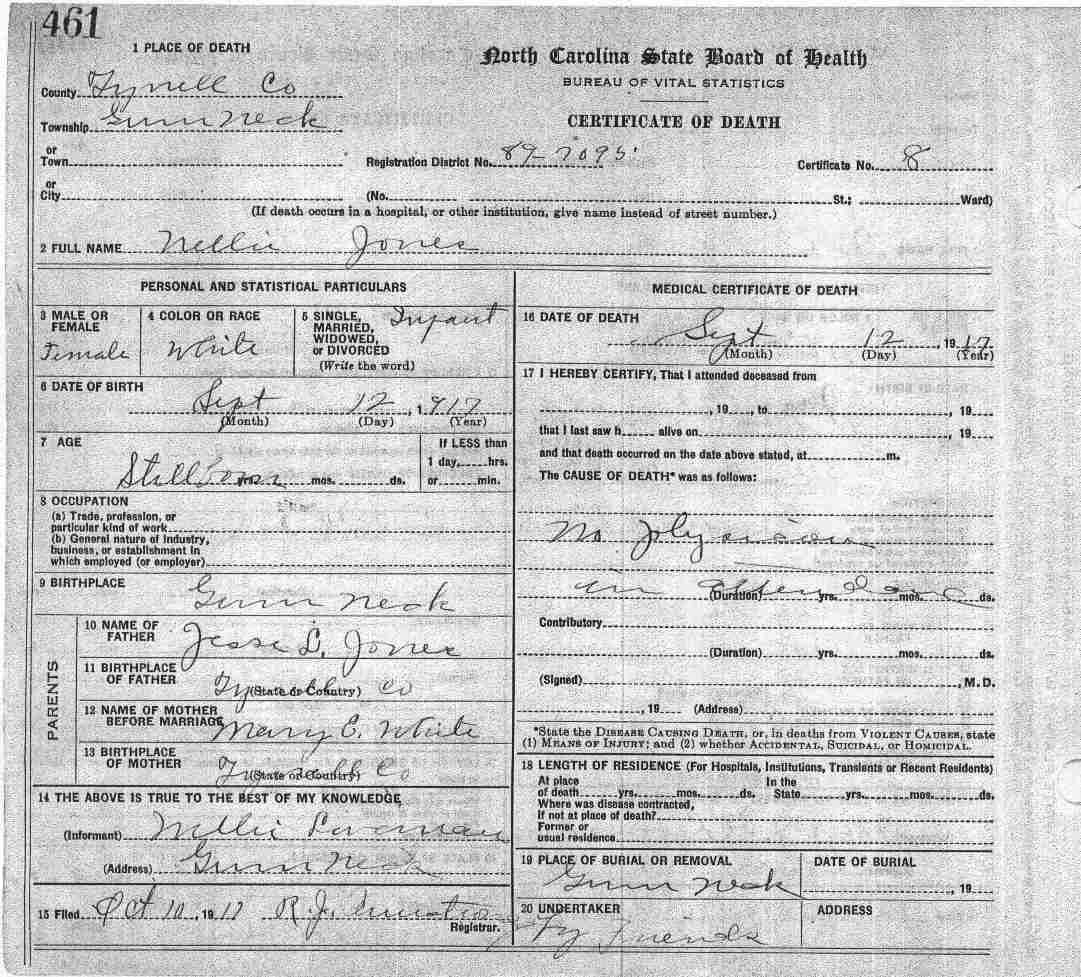 461
1 PLACE OF DEATH
North Carolina State Board of Health
BUREAU OF VITAL STATISTICS
CERTIFICATE OF DEATH
County Tyrrell Co
Township Gum Neck
or
Town
Registration District No. 89-7095
Certificate No. 8
or
City (No. St.; Ward)
(If death occurs in a hospital, or other institution, give name instead of street number.)
2 FULL NAME Nellie Jones
PERSONAL AND STATISTICAL PARTICULARS
3 MALE OR FEMALE
Female
4 COLOR OR RACE
White
5 SINGLE, MARRIED, WIDOWED, or DIVORCED
(Write the word)
Infant
6 DATE OF BIRTH
Sept 12, 1917
(Month) (Day) (Year)
7 AGE
Stillborn yrs. mos. ds.
If LESS than
1 day, hrs.
or min.
8 OCCUPATION
(a) Trade, profession, or
particular kind of work
(b) General nature of industry,
business, or establishment in
which employed (or employer)
9 BIRTHPLACE
Gum Neck
PARENTS
10 NAME OF FATHER
Jesse L. Jones
11 BIRTHPLACE OF FATHER
(State or Country)
Tyrrell Co
12 NAME OF MOTHER BEFORE MARRIAGE
Mary E. White
13 BIRTHPLACE OF MOTHER
(State or Country)
Tyrrell Co
14 THE ABOVE IS TRUE TO THE BEST OF MY KNOWLEDGE
(Informant) Nellie
(Address) Gum Neck
15 Filed Oct 10, 1917 R. J.
Registrar.
MEDICAL CERTIFICATE OF DEATH
16 DATE OF DEATH
Sept 12 1917
(Month) (Day) (Year)
17 I HEREBY CERTIFY, That I attended deceased from
, 19 , to , 19
that I last saw h alive on , 19
and that death occurred on the date above stated, at m.
The CAUSE OF DEATH* was as follows:
No physician
in attendance
(Duration) yrs. mos. ds.
Contributory
(Duration) yrs. mos. ds.
(Signed) , M.D.
, 19 (Address)
*State the DISEASE CAUSING DEATH, or, in deaths from VIOLENT CAUSES, state
(1) MEANS OF INJURY; and (2) whether ACCIDENTAL, SUICIDAL, or HOMICIDAL.
18 LENGTH OF RESIDENCE (For Hospitals, Institutions, Transients or Recent Residents)
At place In the
of death yrs. mos. ds. State yrs. mos. ds.
Where was disease contracted,
If not at place of death?
Former or
usual residence
19 PLACE OF BURIAL OR REMOVAL
Gum Neck
DATE OF BURIAL
, 19
20 UNDERTAKER
By Friends
ADDRESS